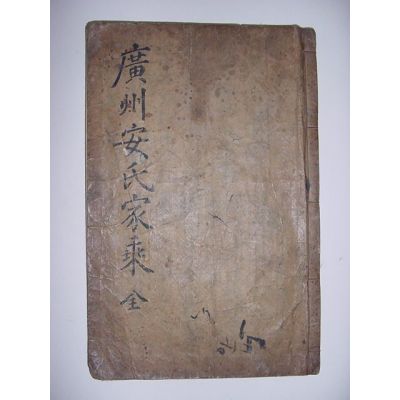 廣州安氏家乘 全